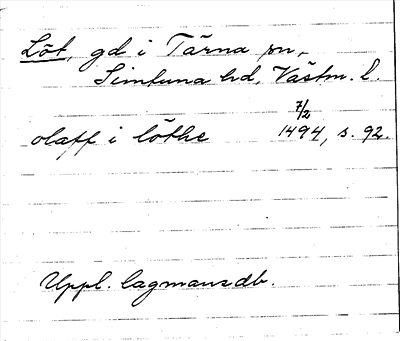 Löt, gd i Tärna sn,
Simtuna hd, Västm. l.
7/2
olaff i löthe 1494, s. 92.
Uppl. lagmansdb.